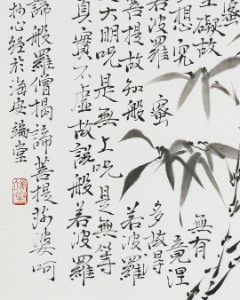 蜜
礙故無有
想究竟涅
若波羅蜜多故得
故知般若波羅
大明咒是無上咒是無等
真實不虛故說般若波羅
諦般羅僧揭諦菩提莎婆呵
抄心經於海安端堂